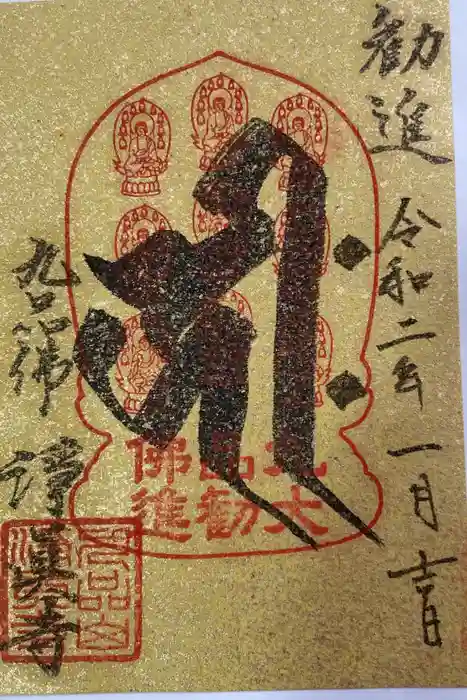 勧進 令和二年一月吉日
九品佛
大勧進
九品佛 淨眞寺